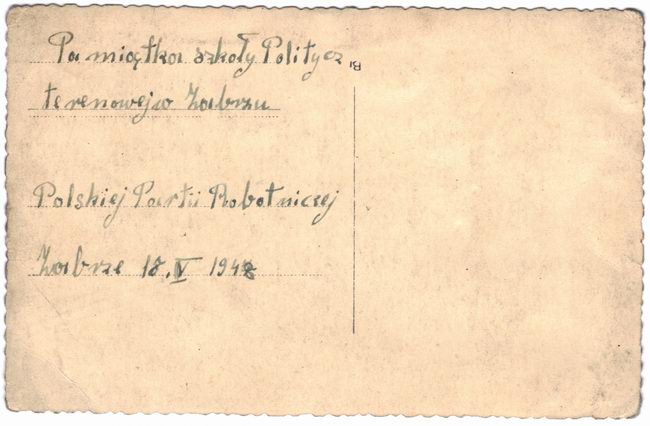 Pamiątka szkoły Politycz
terenowej w Zabrzu
Polskiej Partii Robotniczej
Zabrze 18. V 1948